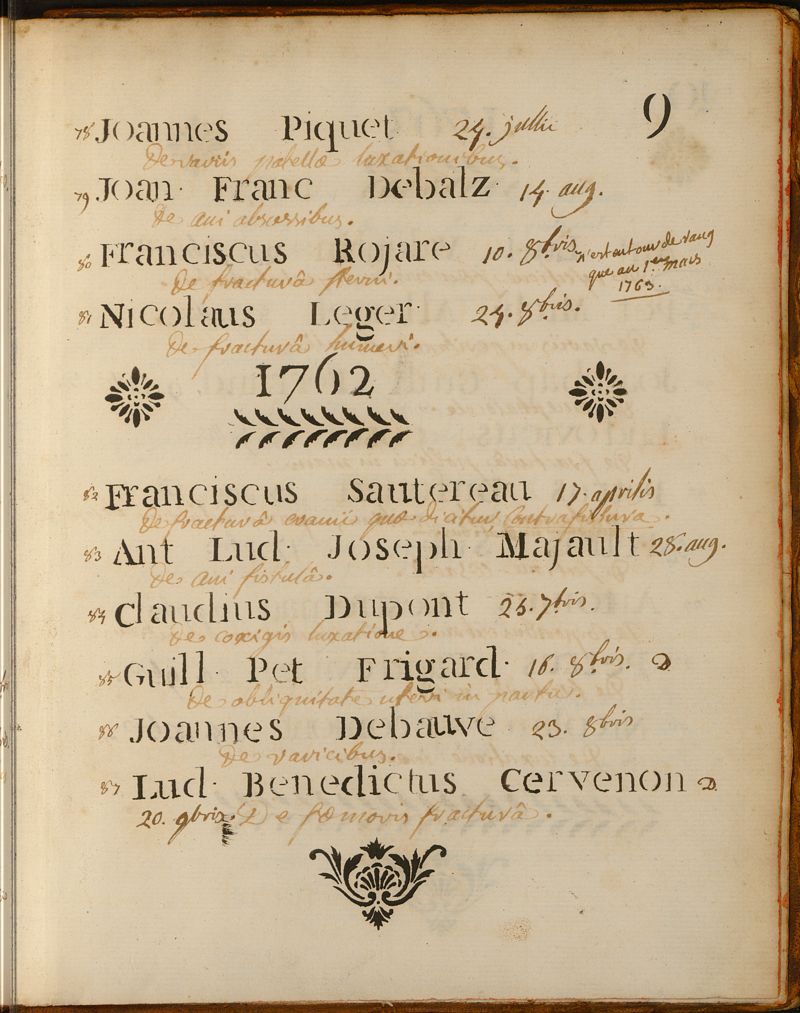 9
78 Joannes Piquet 24. julii
de variis patellæ luxationibus.
79 Joan Franc Debalz 14. aug.
de ani abscessibus.
80 Franciscus Rojare 10. 8bris n'est en tour de rang
que au 1er mars
1763.
de fracturâ sterni.
81 Nicolaus Leger 24. 8bris.
de fracturâ humeri.
1762
82 Franciscus Sautereau 17. aprilis
de fracturâ cranii quæ dicitur contrafissura.
83 Ant Lud Joseph Majault 28. aug.
de ani fistulâ.
84 Claudius Dupont 23. 7bris.
de coxigis luxatione.
85 Guill Pet Frigard 16. 8bris. D
de obliquitate uteri in partu.
86 Joannes Debauve 23. 8bris
de varicibus.
87 Lud Benedictus Cervenon D
20. 9bris. De fœmoris fracturâ.